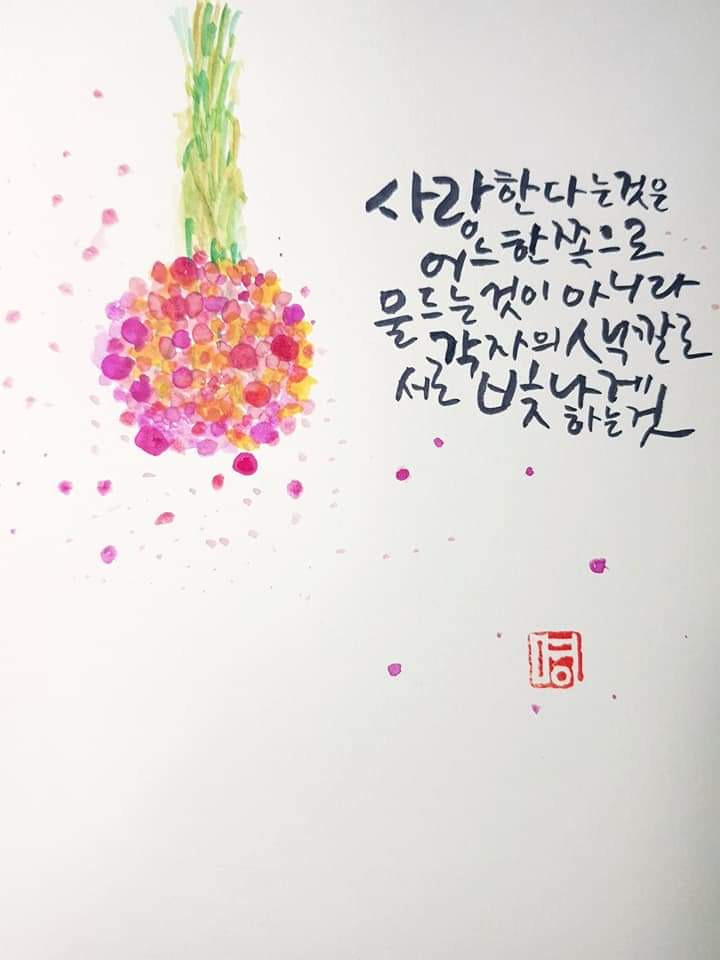 사랑한다는것은
어느한쪽으로
물드는것이아니라
각자의색깔로
서로 빛나게
하는것